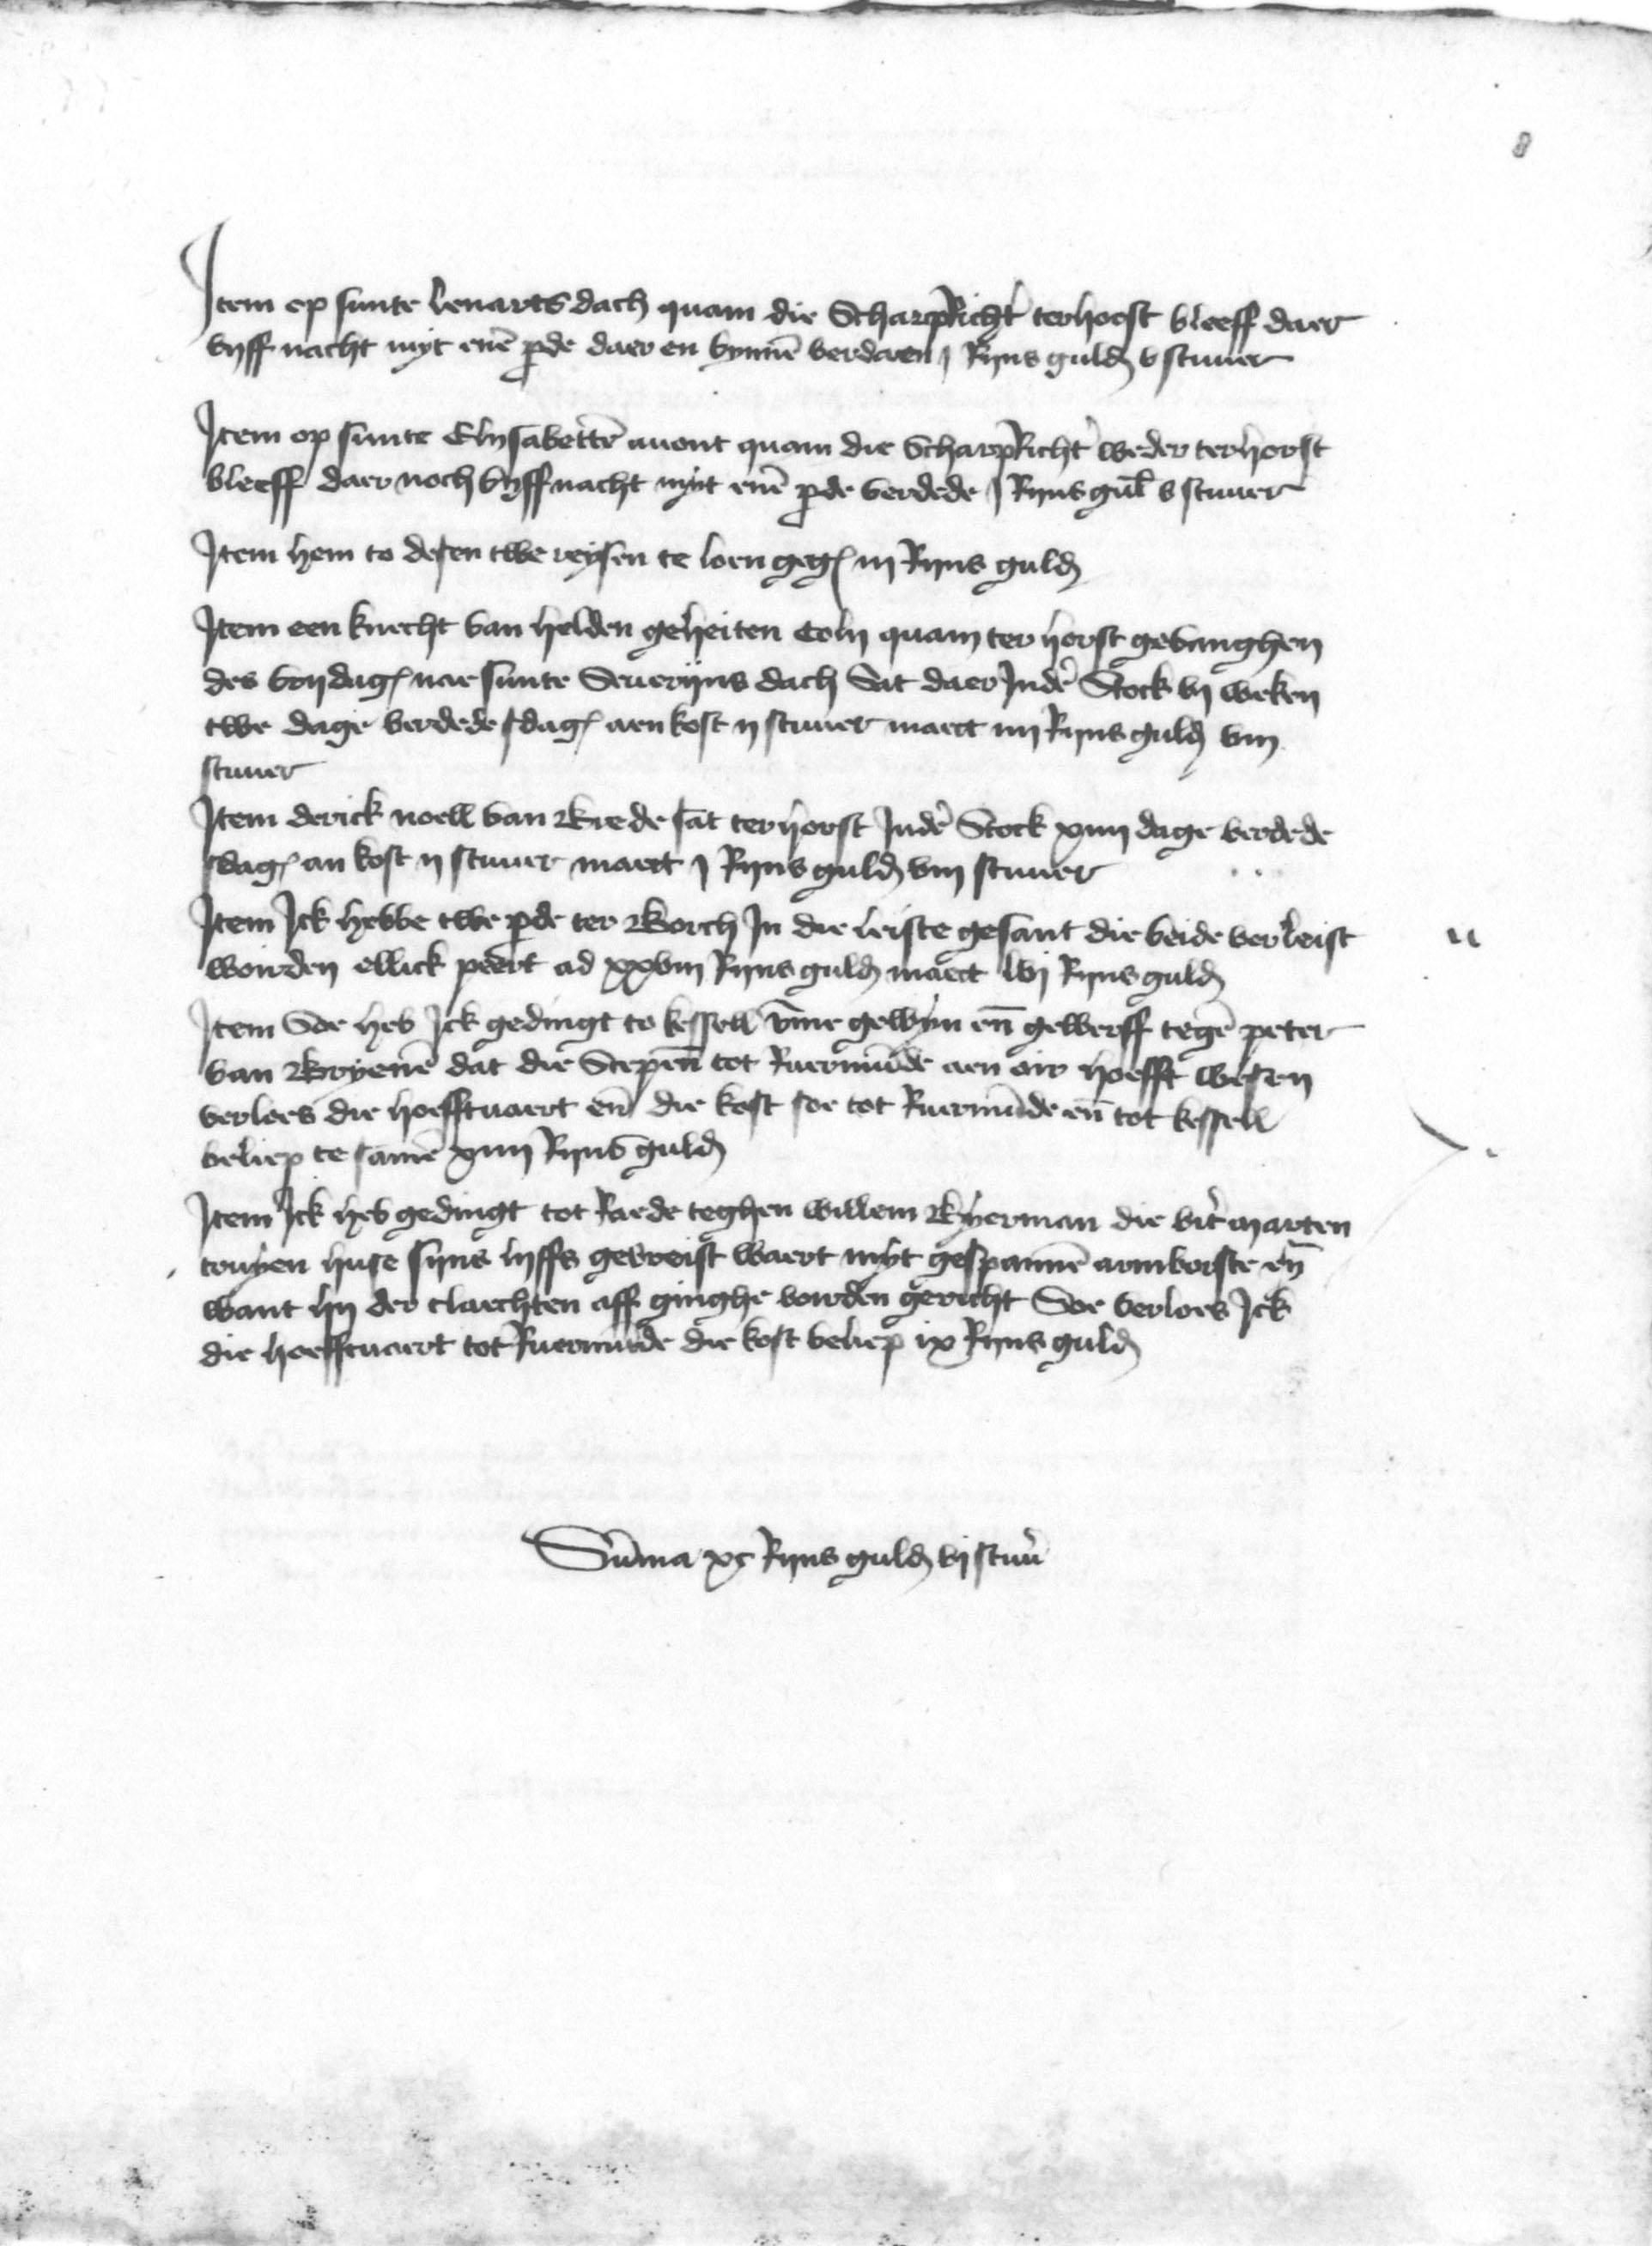 8
Item op sunte lenarts dach quam die Scharpricht' terhorst bleeff daer
vyff nacht myt enē pde daer en bynnē verdaen j Ryns guld v stuuer
Item op sunte Elysabettē auont quam die Scharpricht' weder terhorst
bleeff daer noch vyff nacht myt enē pde verdede j Ryns gul v stuuer
Item hem to desen twe reysen te loen geg iij Ryns guld
Item een knecht van helden geheiten Coln quam ter horst gevanghen
des vrydag nae sunte Seueryns dach Sat daer Indē Stock vj weken
twe dage verdede sdag aen kost ij stuuer maect iiij Ryns guld viij
stuuer
Item derick noell van Rede sat terhorst Indē Stock xiiij dage verdede
sdag an kost ij stuuer maect j Ryns guld viij stuuer
Item Ick hebbe twe pde ter Borch In die leiste gesant die beide verleist
woirden ellick peert ad xxviij Ryns guld maect lvj Ryns guld
Item Soe heb Ick gedingt to kessell vme gewyn eñ gewerff tegē peter
van Bryenē dat die Scepen tot Ruermūde aen oir hoefft wesen
verloes die hoefftuaert eñ die kost soe tot Ruermūde eñ tot kessell
beliep te samē xiiij Ryns guld
Item Ick heb gedingt tot Raede teghen willem Ryerman die vit marten
truyen huse syns lyffs gevreist waert myt gespannē armborste eñ
want hy der claechten aff ginghe vorden gericht Soe verloes Ick
die hoefftuaert tot Ruermūde die kost beliep ix Ryns guld
Sūma xc Ryns guld vj stuu'